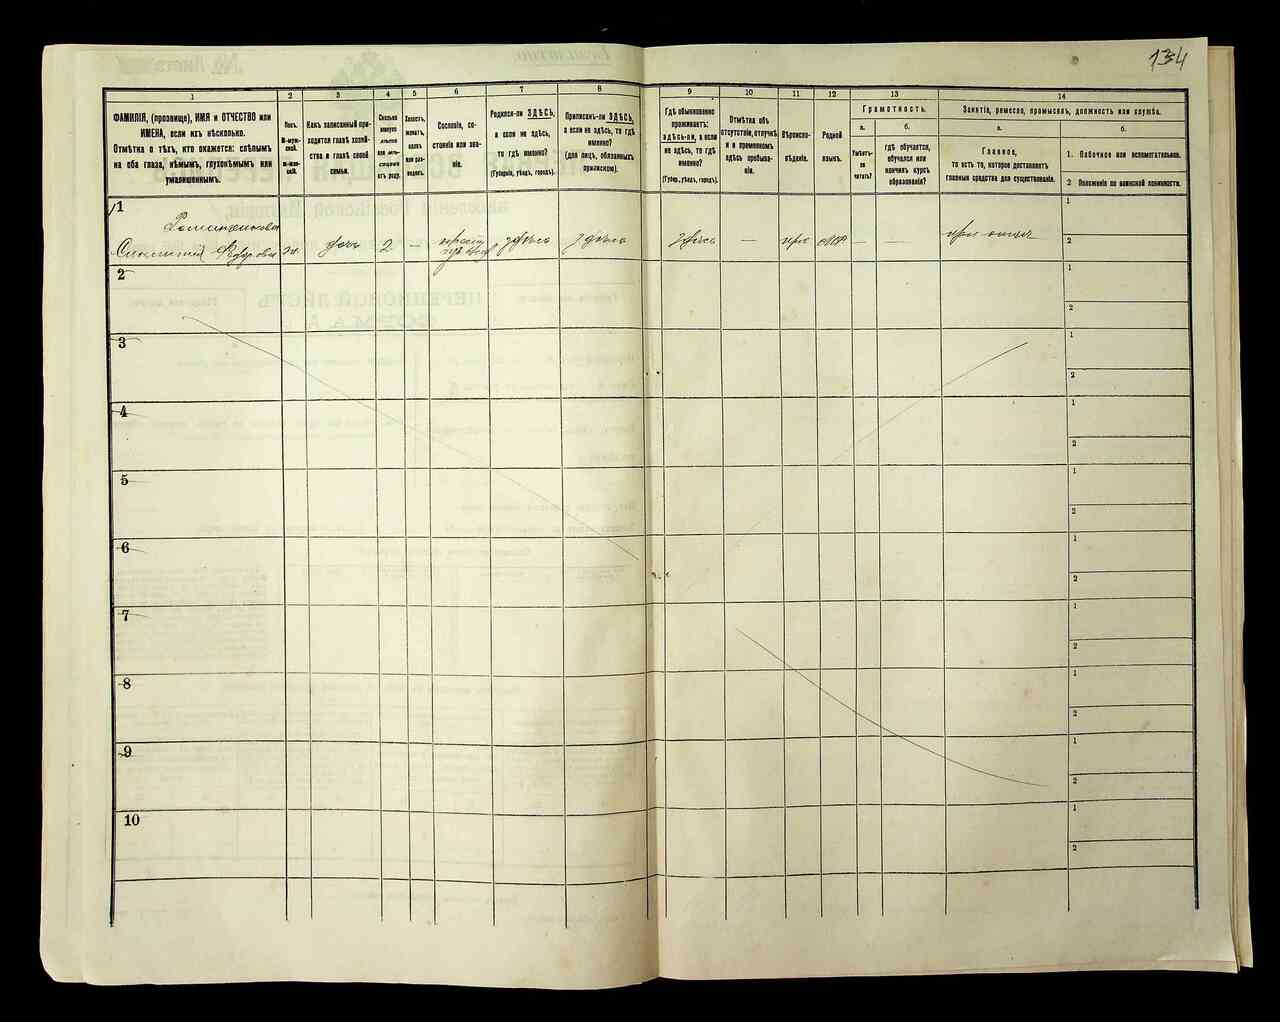 134
1
2
3
4
5
6
7
8
9
10
11
12
13
14
ФАМИЛІЯ, (прозвище), ИМЯ и ОТЧЕСТВО или
ИМЕНА, если ихъ нѣсколько.
Отмѣтка о тѣхъ, кто окажется: слѣпымъ
на оба глаза, нѣмымъ, глухонѣмымъ или
умалишеннымъ.
Полъ.
М-муж-
ской.
Ж-жен-
скій.
Какъ записанный при-
ходится главѣ хозяй-
ства и главѣ своей
семьи.
Сколько
минуло
лѣтъ
или мѣ-
сяцевъ
отъ роду.
Холостъ,
женатъ,
вдовъ
или раз-
веденъ.
Сословіе, со-
стояніе или зва-
ніе.
Родился-ли ЗДѢСЬ,
а если не здѣсь,
то гдѣ именно?
(Губернія, уѣздъ, городъ).
Приписанъ-ли ЗДѢСЬ,
а если не здѣсь, то гдѣ
именно?
(для лицъ, обязанныхъ
припискою).
Гдѣ обыкновенно
проживаетъ:
здѣсь-ли, а если
не здѣсь, то гдѣ
именно?
(Губерн., уѣздъ, городъ).
Отмѣтка объ
отсутствіи, отлучкѣ
и о временномъ
здѣсь пребыва-
ніи.
Вѣроиспо-
вѣданіе.
Родной
языкъ.
Грамотность.
а.
Умѣетъ-
ли
читать?
б.
гдѣ обучается,
обучался или
кончилъ курсъ
образованія?
Занятіе, ремесло, промыселъ, должность или служба.
а.
Главное,
то есть то, которое доставляетъ
главныя средства для существованія.
б.
1. Побочное или вспомогательное.
2 Положеніе по воинской повинности.
1
ж.
дочь
2
—
здѣсь
здѣсь
здѣсь
—
пра
—
—
при отцѣ
1
2
2
1
2
3
1
2
4
1
2
5
1
2
6
1
2
7
1
2
8
1
2
9
1
2
10
1
2